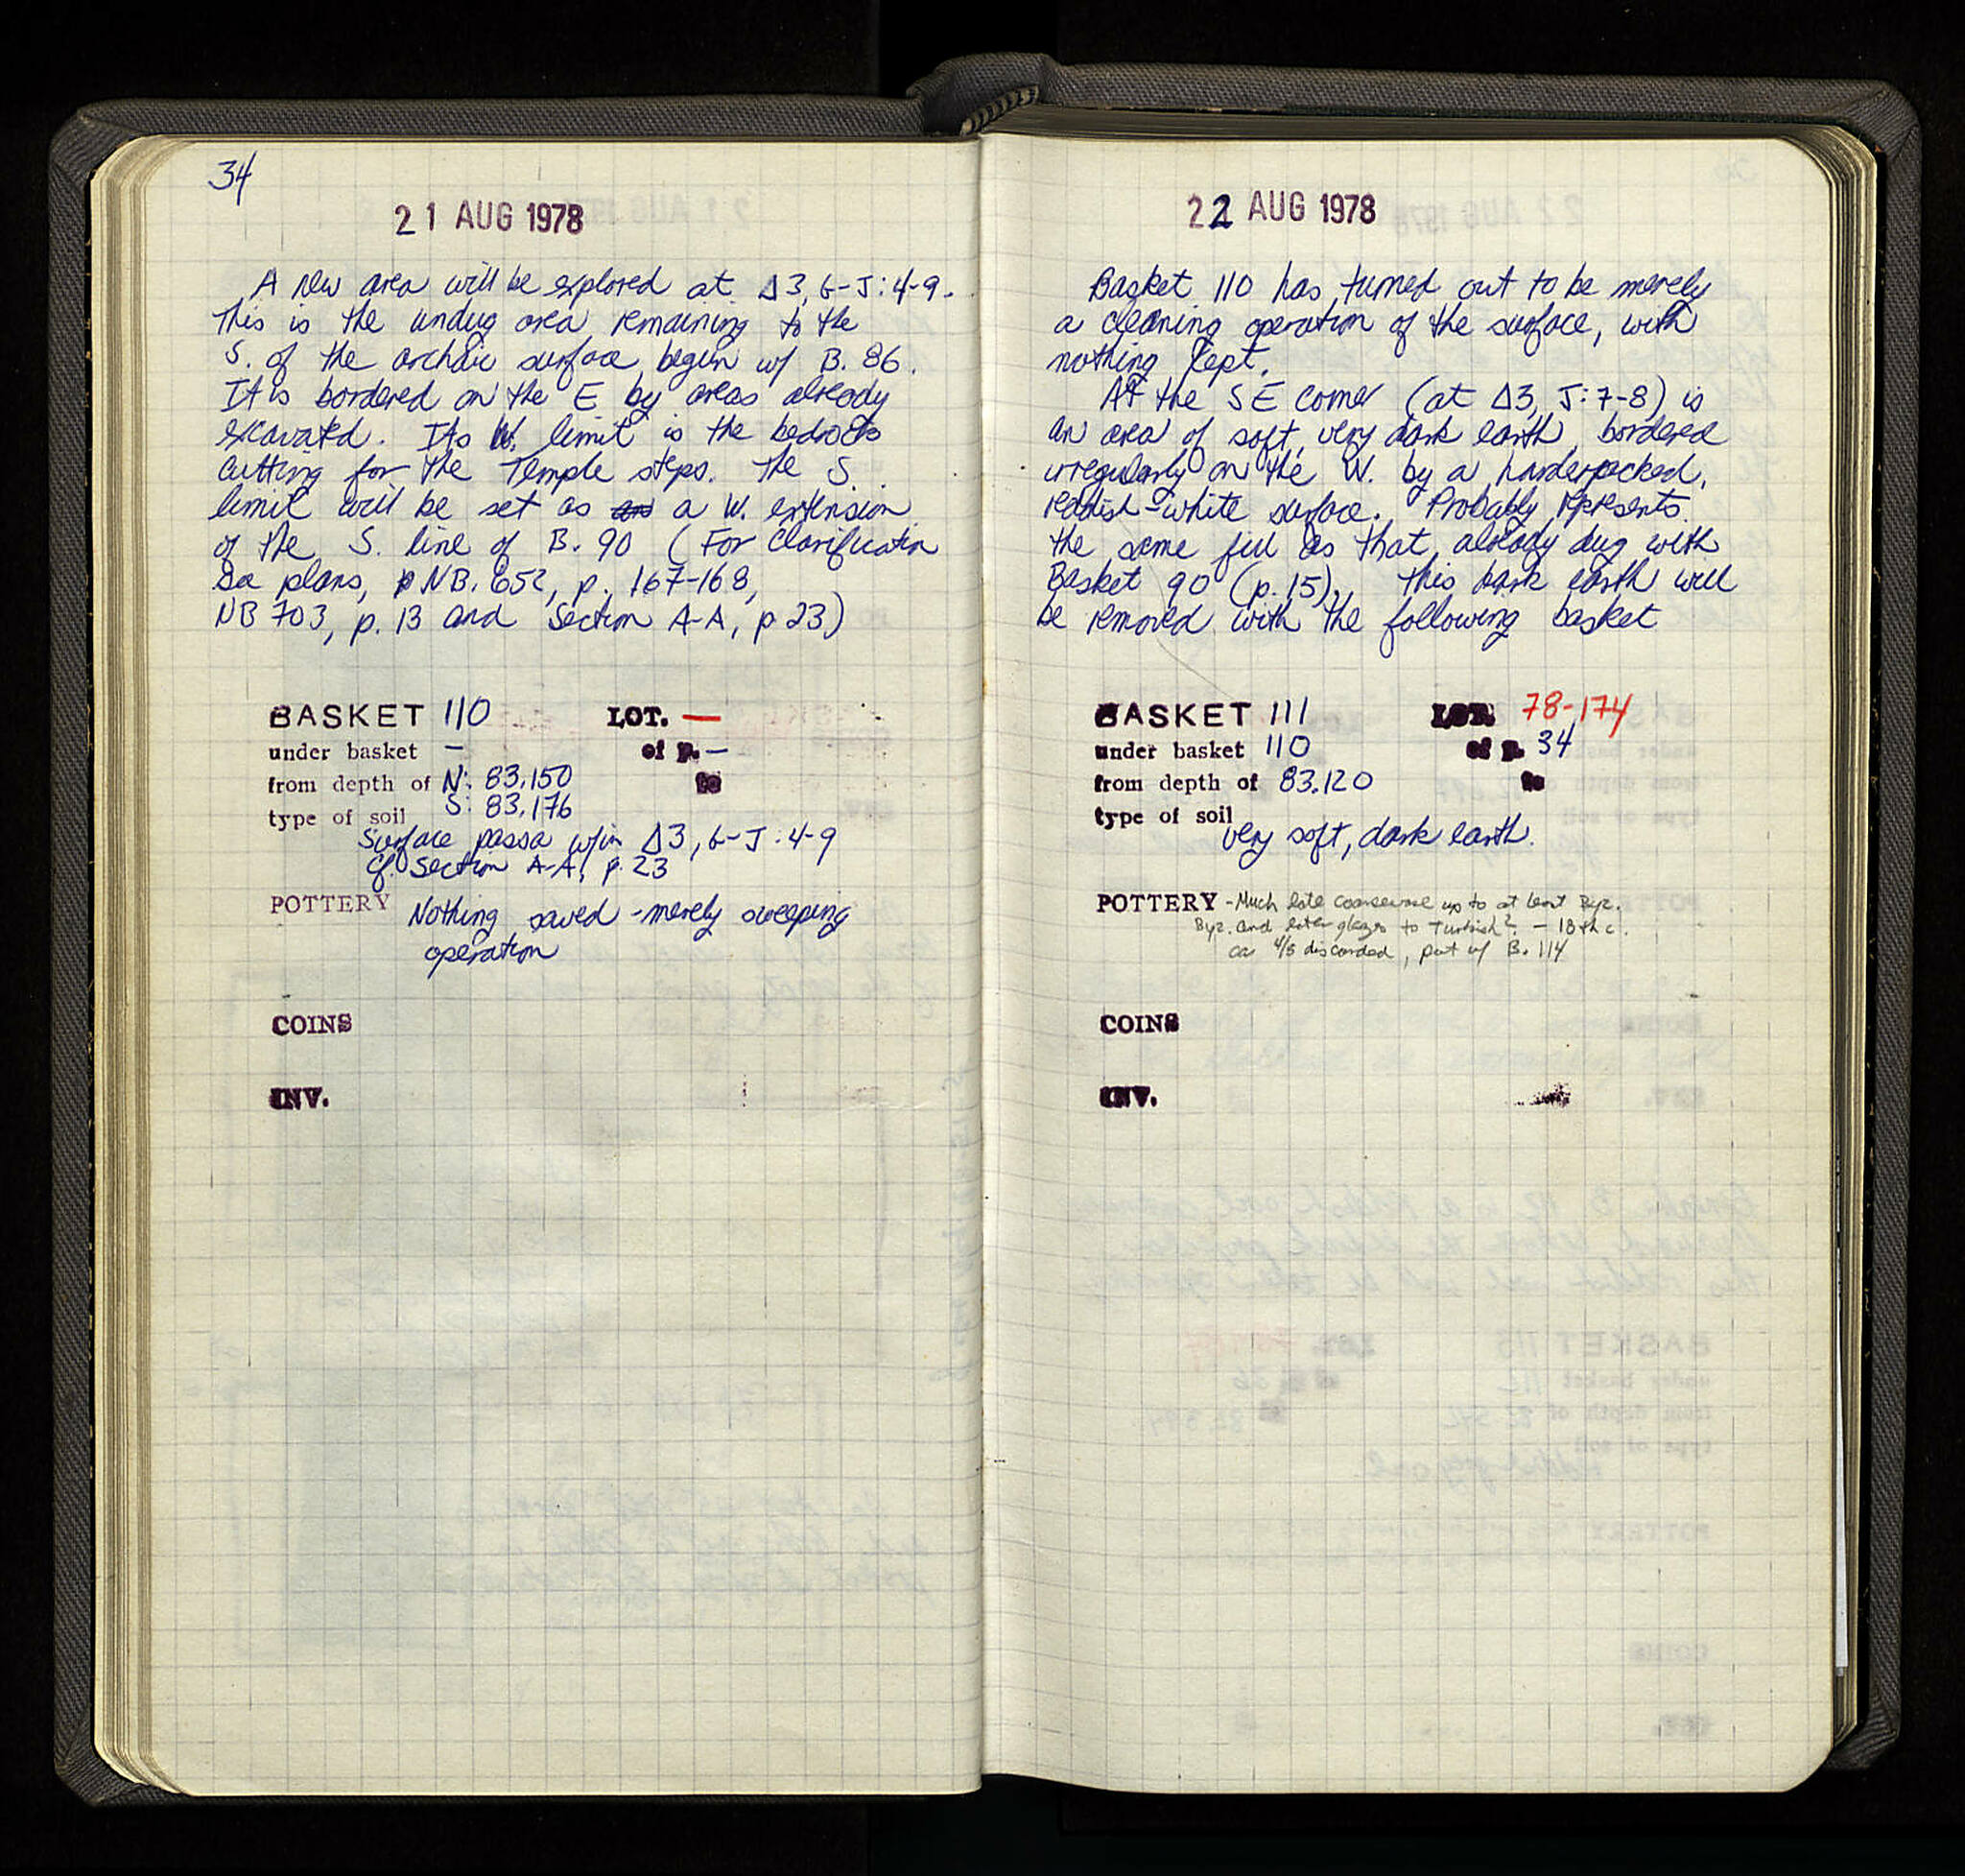 34
21 AUG 1978
A new area will be explored at Δ3, G-J: 4-9.
This is the undug area remaining to the
S. of the archaic surface begun w/ B. 86.
It is bordered on the E by areas already
excavated. Its W. limit is the bedrock
cutting for the Temple steps. The S.
limit will be set as an a W. extension
of the S. line of B. 90 (For clarification
see plans, NB. 652, p. 167-168,
NB 703, p. 13 and Section A-A, p 23)
BASKET 110 LOT. —
under basket – of p. –
from depth of N: 83.150 to
S: 83.176
type of soil
Surface passa w/in Δ3, G-J: 4-9
Cf. Section A-A, p. 23
POTTERY Nothing saved - merely sweeping
operation
COINS
INV.
22 AUG 1978
Basket 110 has turned out to be merely
a cleaning operation of the surface, with
nothing kept.
At the SE corner (at Δ3, J: 7-8) is
an area of soft, very dark earth, bordered
irregularly on the W. by a harderpacked,
reddish-white surface. Probably represents
the same fill as that already dug with
Basket 90 (p. 15). This dark earth will
be removed with the following basket
BASKET 111 LOT. 78-174
under basket 110 of p. 34
from depth of 83.120 to
type of soil
very soft, dark earth.
POTTERY - Much late coarseware up to at least Byz.
Byz. and later glazes to Turkish? – 18th c.
ca 4/5 discarded, put w/ B. 114
COINS
INV.